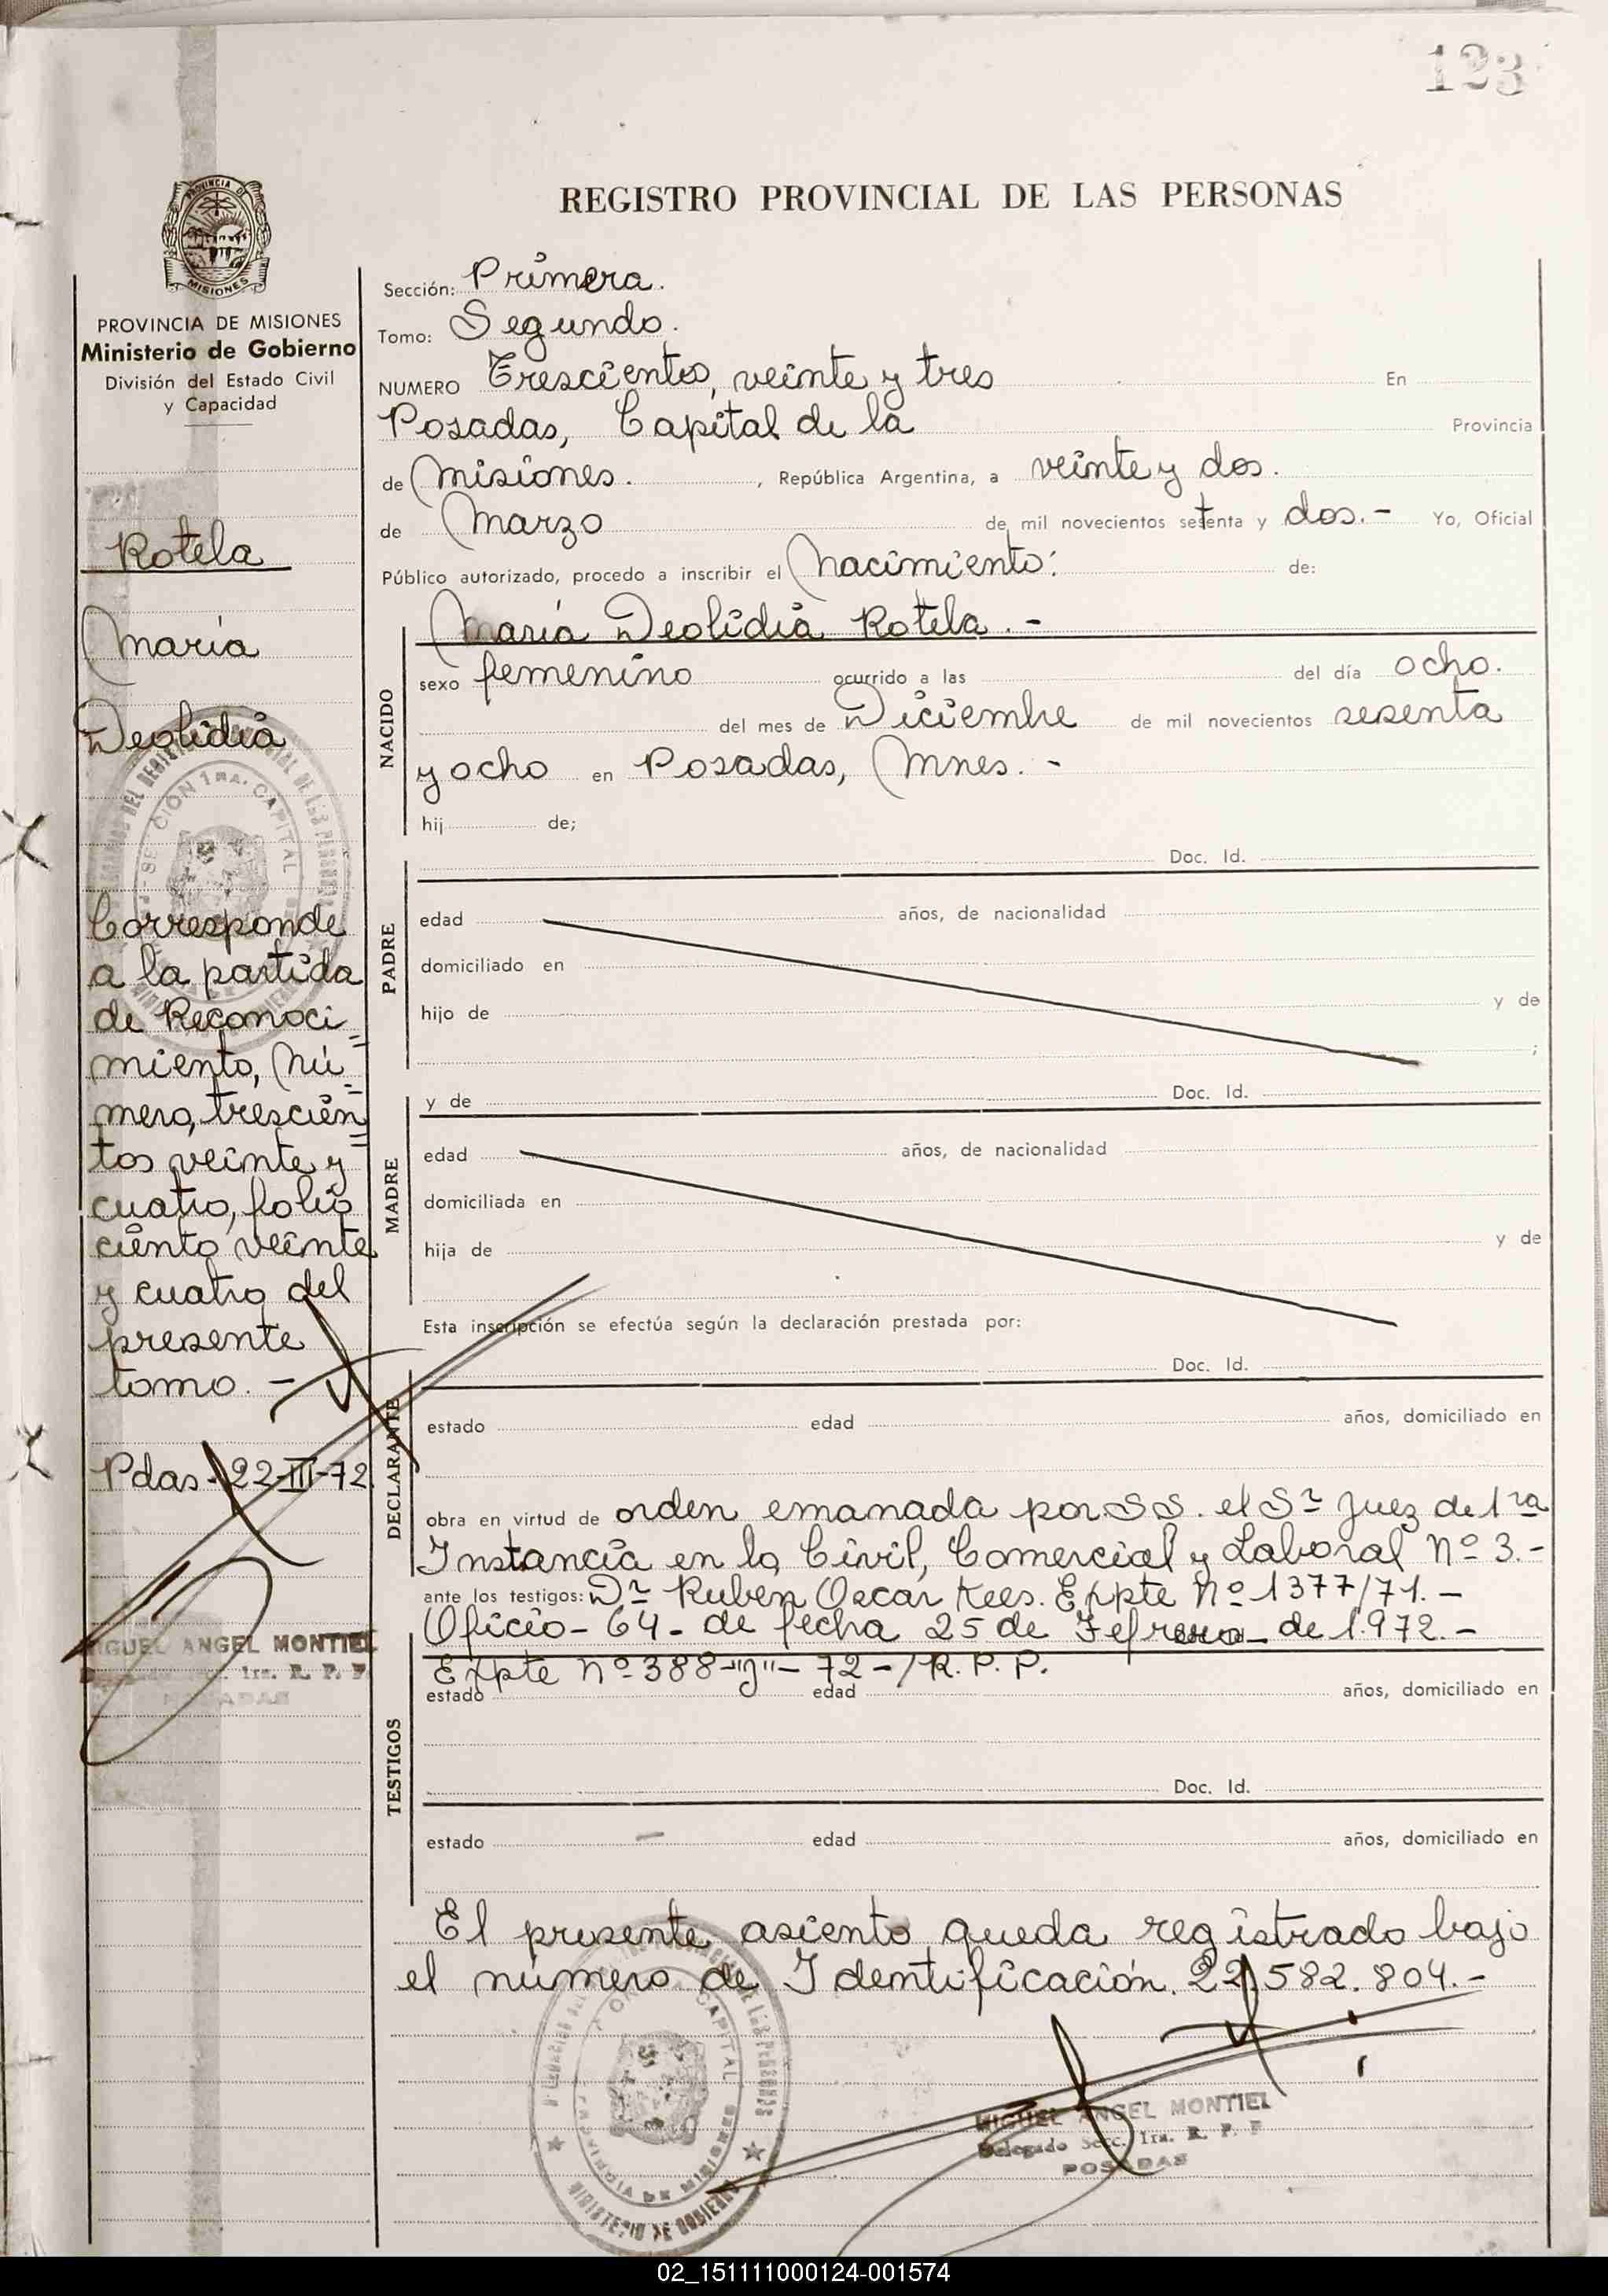 123
REGISTRO PROVINCIAL DE LAS PERSONAS
PROVINCIA DE MISIONES
Ministerio de Gobierno
División del Estado Civil
y Capacidad
Rotela
María
Deolidia
Corresponde
a la partida
de Reconoci
miento, Nú
mero, trescien
tos veinte y
cuatro, folio
ciento veinte
y cuatro del
presente
tomo. -
Pdas - 22-III-72
MIGUEL ANGEL MONTIEL
Sección: Primera.
Tomo: Segundo.
NUMERO Trescientos, veinte y tres En
Posadas, Capital de la Provincia
de Misiones. , República Argentina, a veinte y dos.
de Marzo de mil novecientos setenta y dos.- Yo, Oficial
Público autorizado, procedo a inscribir el Nacimiento: de:
María Deolidia Rotela. -
NACIDO
sexo femenino ocurrido a las del día ocho.
del mes de Diciembre de mil novecientos sesenta
y ocho en Posadas, Mnes. -
hij de;
Doc. Id.
PADRE
edad años, de nacionalidad
domiciliado en
hijo de y de
;
y de Doc. Id.
MADRE
edad años, de nacionalidad
domiciliada en
hija de y de
Esta inscripción se efectúa según la declaración prestada por:
Doc. Id.
DECLARANTE
estado edad años, domiciliado en
obra en virtud de orden emanada por S.S. el Sr Juez de 1ra
Instancia en lo Civil, Comercial y Laboral Nº 3.-
ante los testigos: Dr Ruben Oscar Kees. Expte Nº 1377/71. -
Oficio - 64 - de fecha 25 de Febrero - de 1.972. -
Expte Nº 388-"J"- 72 - / R. P. P.
estado edad años, domiciliado en
TESTIGOS
Doc. Id.
estado edad años, domiciliado en
El presente asiento queda registrado bajo
el número de Identificación. 22.582.804.-
CAPITAL
MINISTERIO DE GOBIERNO
MIGUEL ANGEL MONTIEL
Delegado Secc. 1ra. R. P. P.
POSADAS
02_151111000124-001574